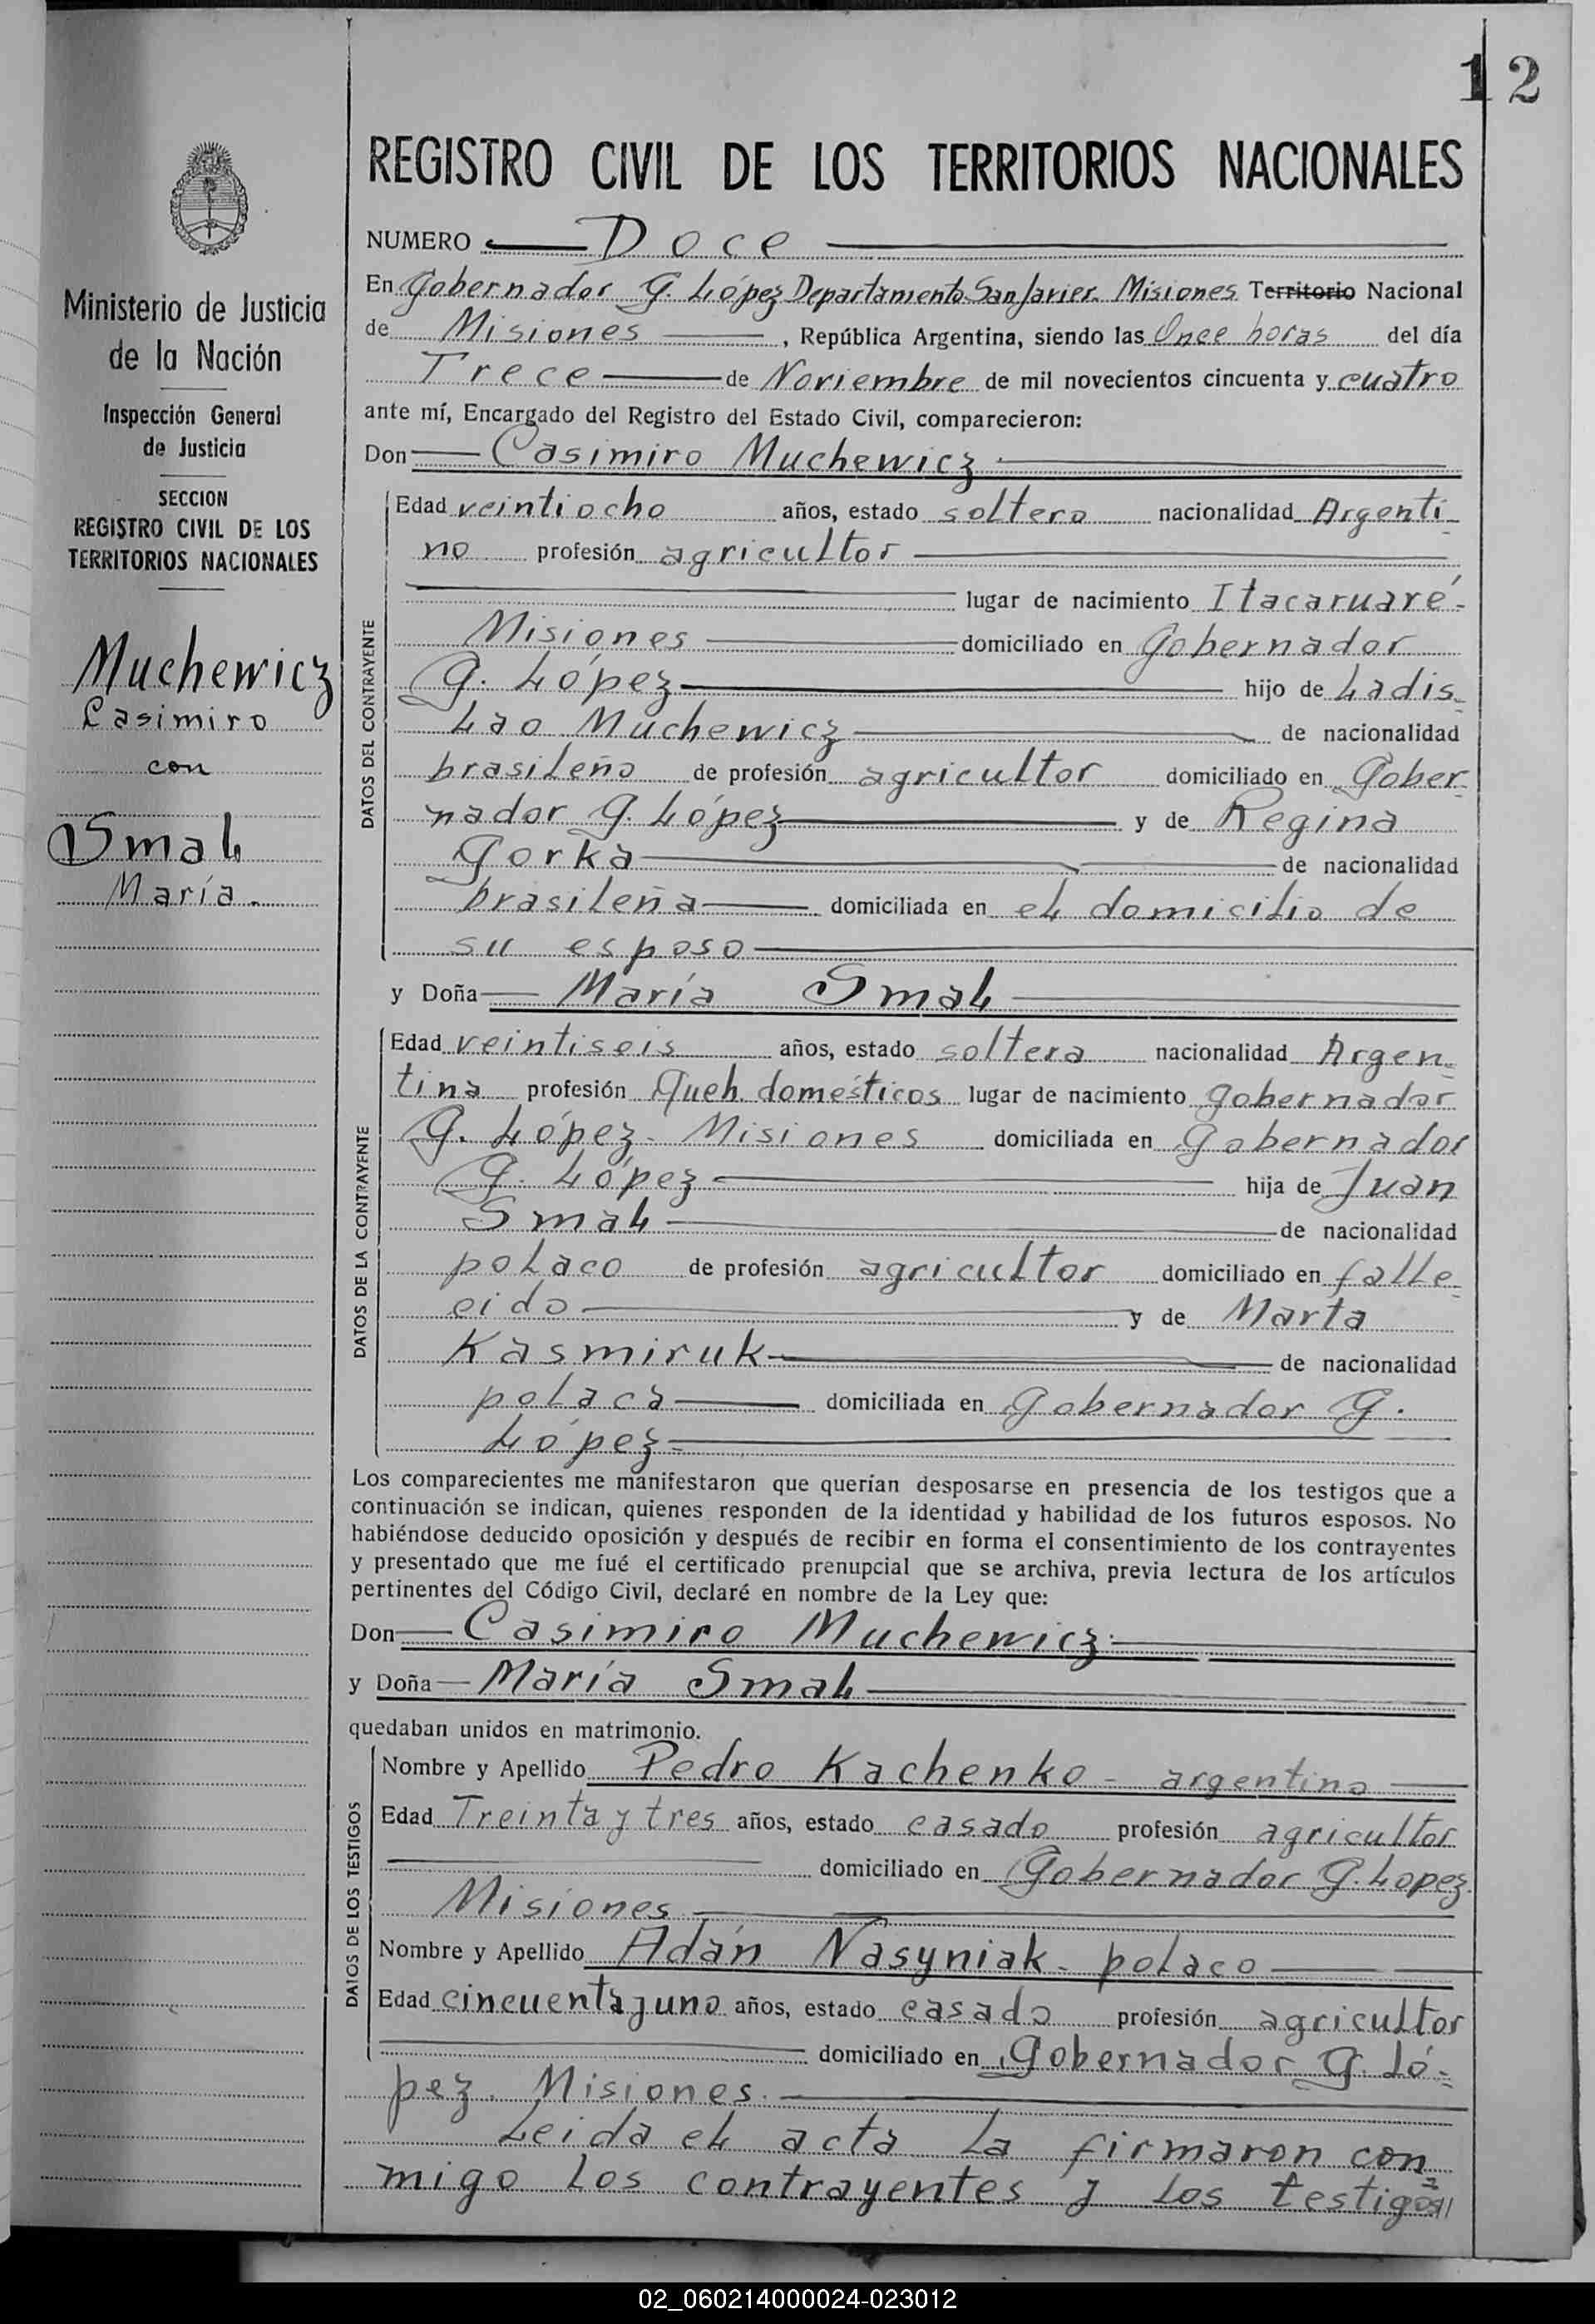 12
REGISTRO CIVIL DE LOS TERRITORIOS NACIONALES
Ministerio de Justicia
de la Nación
Inspección General
de Justicia
SECCION
REGISTRO CIVIL DE LOS
TERRITORIOS NACIONALES
Muchewicz
Casimiro
con
Smal
María.
NUMERO Doce
En Gobernador G. López Departamento San Javier Misiones Territorio Nacional
de Misiones, República Argentina, siendo las Once horas del día
Trece de Noviembre de mil novecientos cincuenta y cuatro
ante mí, Encargado del Registro del Estado Civil, comparecieron:
Don Casimiro Muchewicz
DATOS DEL CONTRAYENTE
Edad veintiocho años, estado soltero nacionalidad Argenti-
no profesión agricultor
lugar de nacimiento Itacaruaré-
Misiones domiciliado en Gobernador
G. López hijo de Ladis-
lao Muchewicz de nacionalidad
brasileño de profesión agricultor domiciliado en Gober-
nador G. López y de Regina
Gorka de nacionalidad
brasileña domiciliada en el domicilio de
su esposo
y Doña María Smal
DATOS DE LA CONTRAYENTE
Edad veintiseis años, estado soltera nacionalidad Argen-
tina profesión Queh. domésticos lugar de nacimiento Gobernador
G. López- Misiones domiciliada en Gobernador
G. López hija de Juan
Smal de nacionalidad
polaco de profesión agricultor domiciliado en falle-
cido y de Marta
Kasmiruk de nacionalidad
polaca domiciliada en Gobernador G.
López-
Los comparecientes me manifestaron que querían desposarse en presencia de los testigos que a
continuación se indican, quienes responden de la identidad y habilidad de los futuros esposos. No
habiéndose deducido oposición y después de recibir en forma el consentimiento de los contrayentes
y presentado que me fué el certificado prenupcial que se archiva, previa lectura de los artículos
pertinentes del Código Civil, declaré en nombre de la Ley que:
Don Casimiro Muchewicz
y Doña María Smal
quedaban unidos en matrimonio.
DATOS DE LOS TESTIGOS
Nombre y Apellido Pedro Kachenko - argentino
Edad Treinta y tres años, estado casado profesión agricultor
domiciliado en Gobernador G. Lopez.
Misiones
Nombre y Apellido Adán Nasyniak- polaco
Edad cincuenta y uno años, estado casado profesión agricultor
domiciliado en Gobernador G. Ló-
pez. Misiones.
Leida el acta la firmaron con-
migo los contrayentes y los testigos
02_060214000024-023012